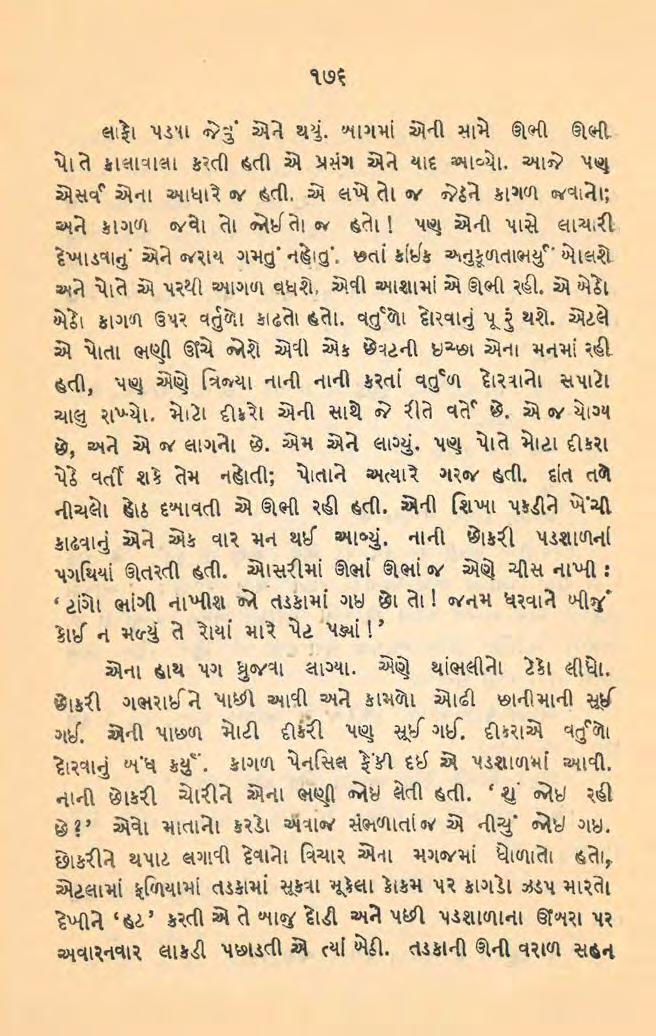 ૧૭૬
લાફો પડ્યા જેવું એને થયું. બાગમાં એની સામે ઊભી ઊભી
પોતે કાલાવાલા કરતી હતી એ પ્રસંગ એને યાદ આવ્યો. આજે પણ
એસર્વ એના આધારે જ હતી. એ લખે તો જ જેઠને કાગળ જવાનો;
અને કાગળ જવો તો જોઈતો જ હતો! પણ એની પાસે લાચારી
દેખાડવાનું એને જરાય ગમતું નહોતું. છતાં કાંઇક અનુકૂળતાભર્યું બોલશે
અને પોતે એ પરથી આગળ વધશે. એવી આશામાં એ ઊભી રહી. એ બેઠો
બેઠો કાગળ ઉપર વર્તુળો કાઢતો હતો. વર્તુળો દોરવાનું પૂરું થશે. એટલે
એ પોતા ભણી ઊંચે જોશે એવી એક છેવટની ઇચ્છા એના મનમાં રહી
હતી, પણ એણે ત્રિજ્યા નાની નાની કરતાં વર્તુળ દોરવાનો સપાટો
ચાલુ રાખ્યો. મોટો દીકરો એની સાથે જે રીતે વર્તે છે. એ જ યોગ્ય
છે, અને એ જ લાગનો છે. એમ એને લાગ્યું. પણ પોતે મોટા દીકરા
પેઠે વર્તી શકે તેમ નહોતી; પોતાને અત્યારે ગરજ હતી. દાંત તળે
નીચલો હોઠ દબાવતી એ ઊભી રહી હતી. એની શિખા પકડીને ખેંચી
કાઢવાનું એને એક વાર મન થઈ આવ્યું. નાની છોકરી પડશાળનાં
પગથિયાં ઊતરતી હતી. ઓસરીમાં ઊભાં ઊભાં જ એણે ચીસ નાખી :
‘ ટાંગો ભાંગી નાખીશ જો તડકામાં ગઇ છો તો! જનમ ધરવાને બીજું
કોઈ ન મળ્યું તે રોયાં મારે પેટ પડ્યાં!’
એના હાથ પગ ધ્રુજવા લાગ્યા. એણે થાંભલીનો ટેકો લીધો.
છોકરી ગભરાઈને પાછી આવી અને કામળો ઓઢી છાનીમાની સૂઈ
ગઈ. એની પાછળ મોટી દીકરી પણ સૂઈ ગઈ. દીકરાએ વર્તુળો
દોરવાનું બંધ કર્યું. કાગળ પેનસિલ ફેંકી દઇ એ પડશાળમાં આવી.
નાની છોકરી ચોરીને એના ભણી જોઇ લેતી હતી. ‘ શું જોઇ રહી
છે?’ એવો માતાનો કરડો અવાજ સંભળાતાં જ એ નીચું જોઇ ગઇ.
છોકરીને થપાટ લગાવી દેવાનો વિચાર એના મગજમાં ઘોળાતો હતો,
એટલામાં ફળિયામાં તડકામાં સૂકવા મૂકેલા કોકમ પર કાગડો ઝડપ મારતો
દેખીને ‘હટ’ કરતી એ તે બાજુ દોડી અને પછી પડશાળાના ઊંબરા પર
અવારનવાર લાકડી પછાડતી એ ત્યાં બેઠી. તડકાની ઊની વરાળ સહન